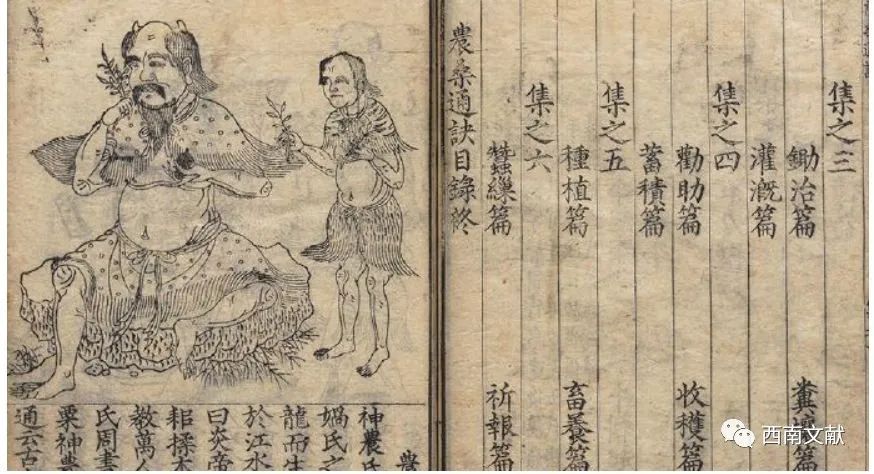 集之三
鋤治篇 糞壤篇
灌漑篇
集之四
勸助篇 收穫篇
蓄積篇
集之五
種植篇 畜養篇
集之六
蠶繅篇 祈報篇
農桑通訣目錄終
農
神農氏
媧氏之
龍而生
於江水
曰炎帝
耜揉木
教萬人
氏周書
粟神農
通云古
西南文献